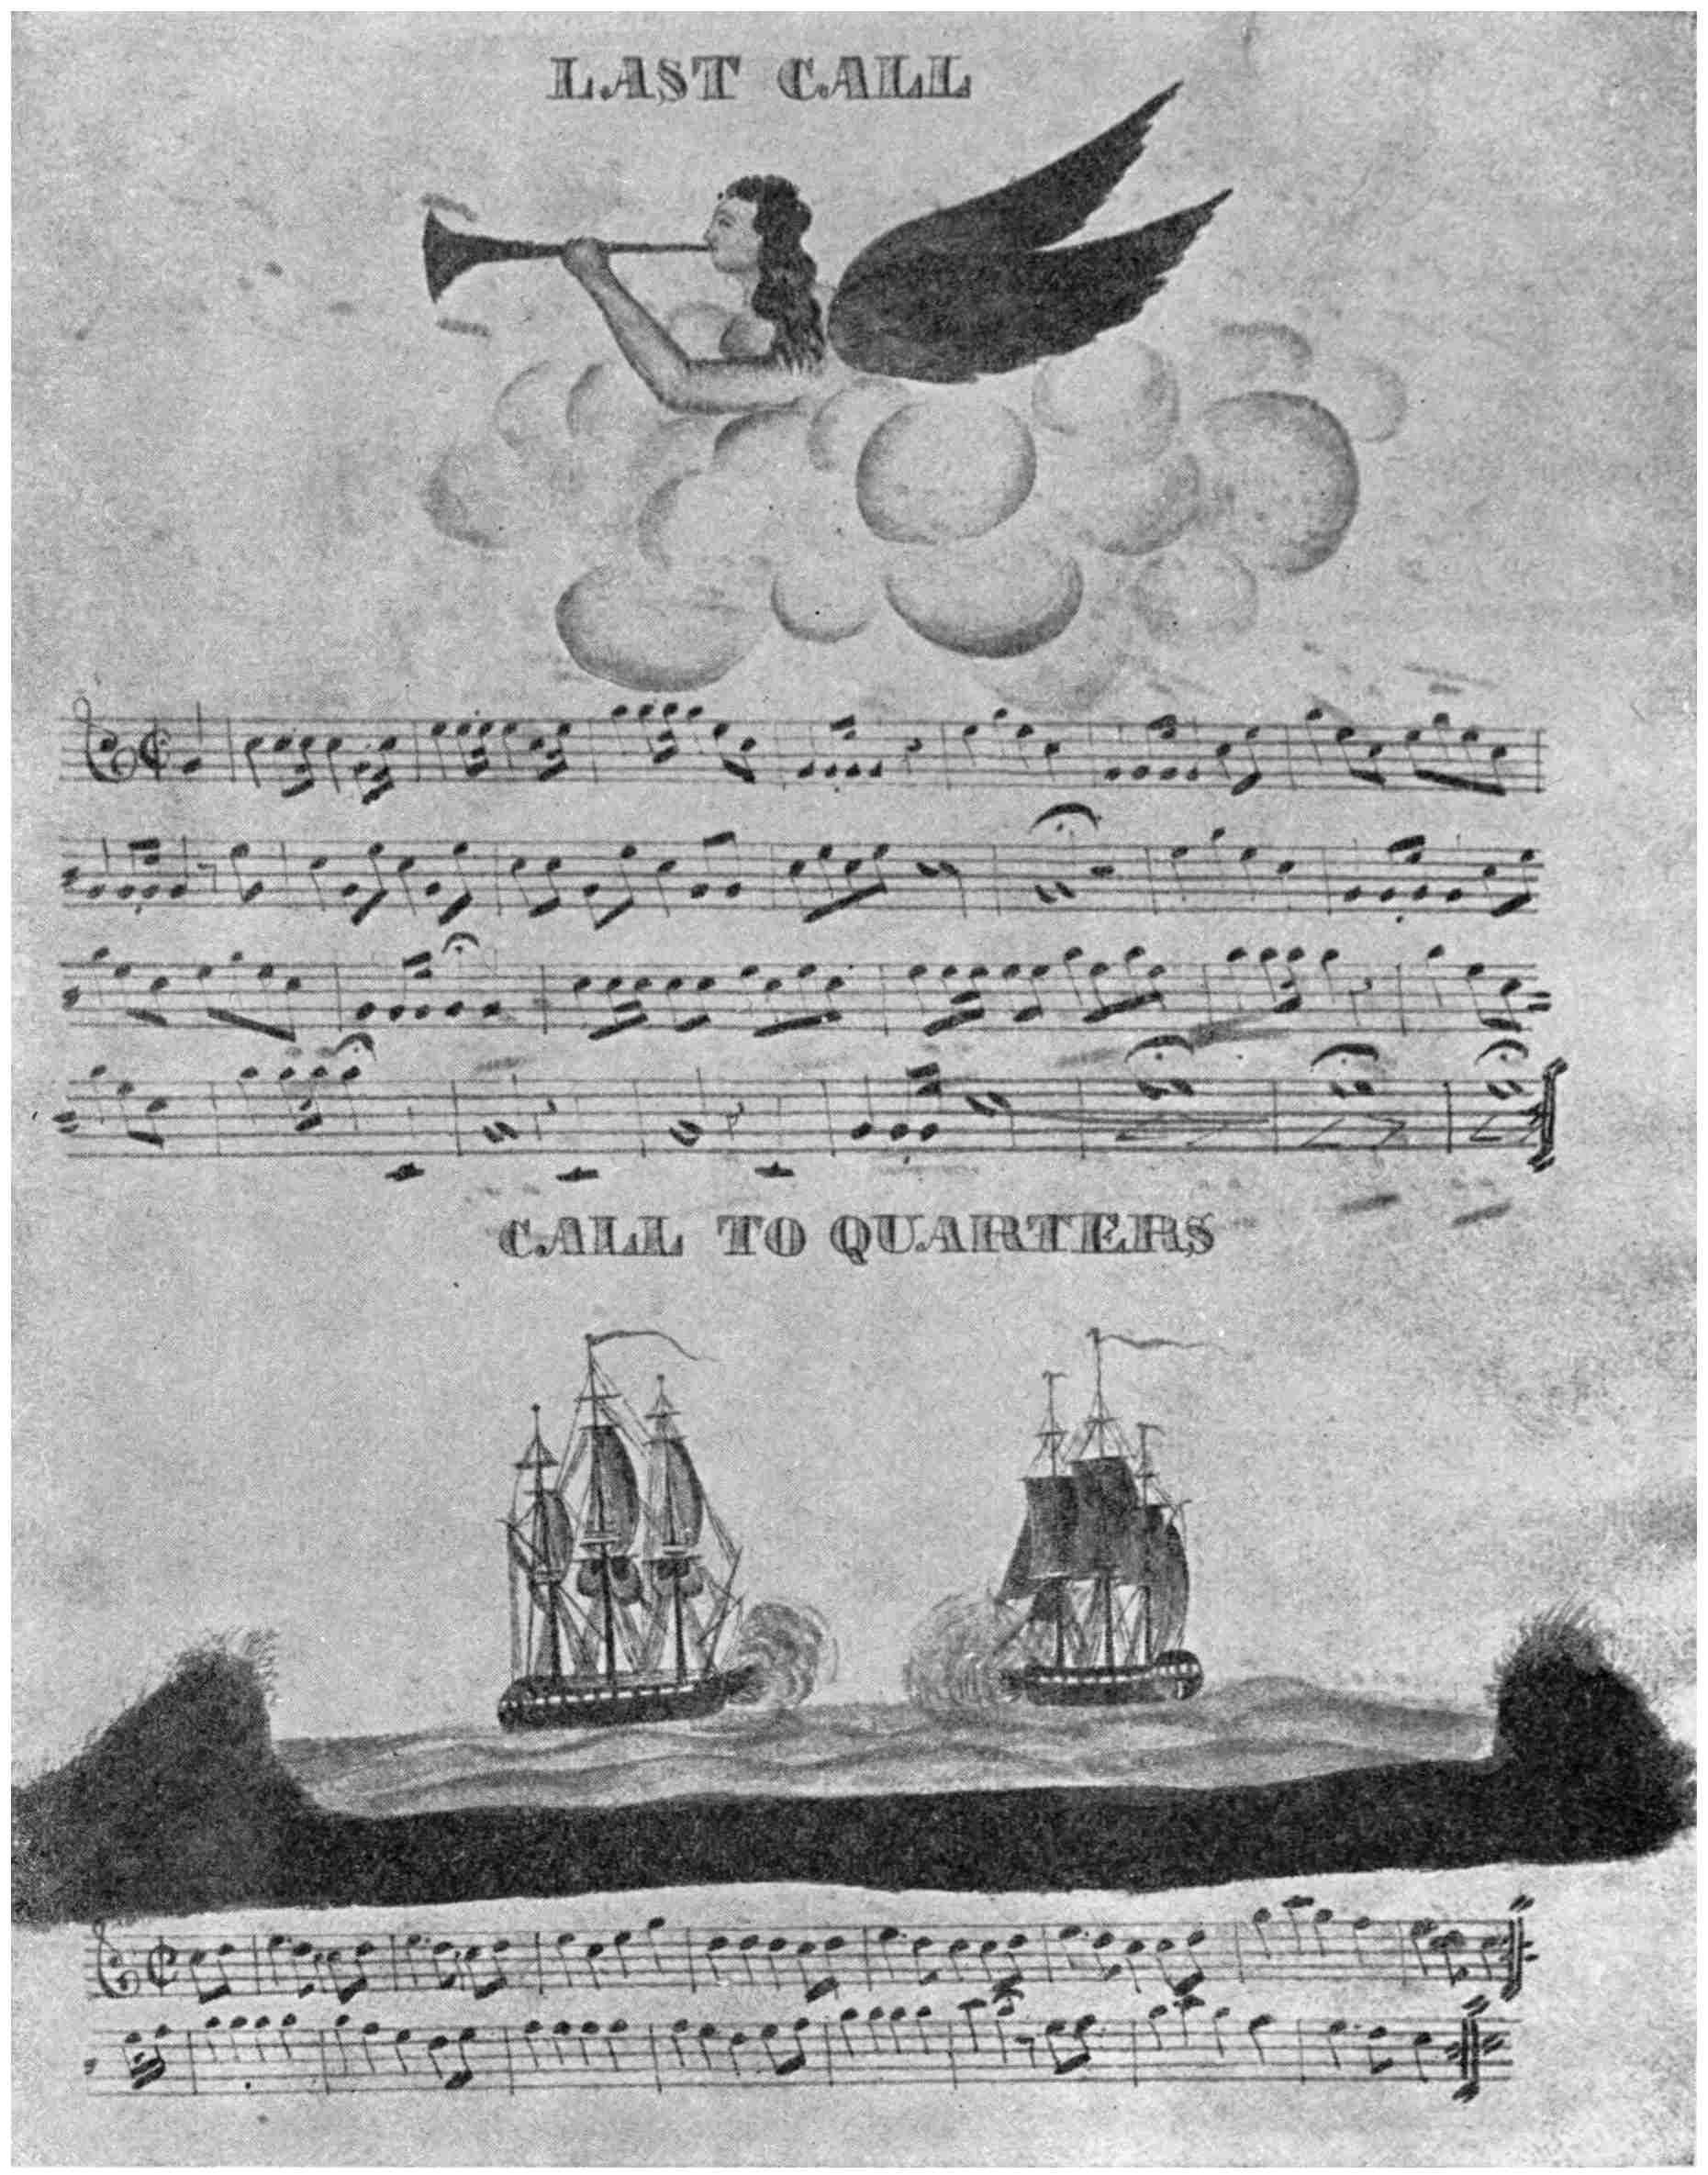 LAST CALL
CALL TO QUARTERS